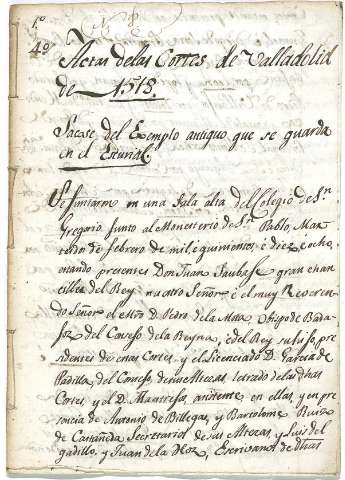 1º
4º
Actas delas Cortes de Valladolid
de 1518.
Sacase del Exemplo antiguo que se guarda
en el Escurial.
Se juntaron en una Sala alta del Colegio de Sn.
Gregorio junto al Monesterio de Sn. Pablo, Mar
tes dos de febrero de mil, e quinientos, e diez, e ocho,
estando presentes Don Juan Saubase gran chan
ciller del Rey nuestro Señor e el muy Reveren
do Señor el Mro D. Pedro de la Mota Obispo de Bada
joz del Consejo de la Reyna, e del Rey su hijo, pre
sidentes de estas Cortes, y el Licenciado D. Garcia de
Padilla del Consejo de sus Altezas, letrado delas dhas
Cortes, y el D. asistente en ellas, y en pre
sencia de Antonio de Billegas, y Bartolome Ruiz
de Castañeda Secretarios de sus Altezas, y Luis del
gadillo, y Juan de la Hoz, Escrivanos de dhas